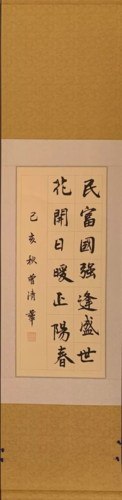 民富國强逢盛世
花開日暖正陽春
己亥秋曾清華